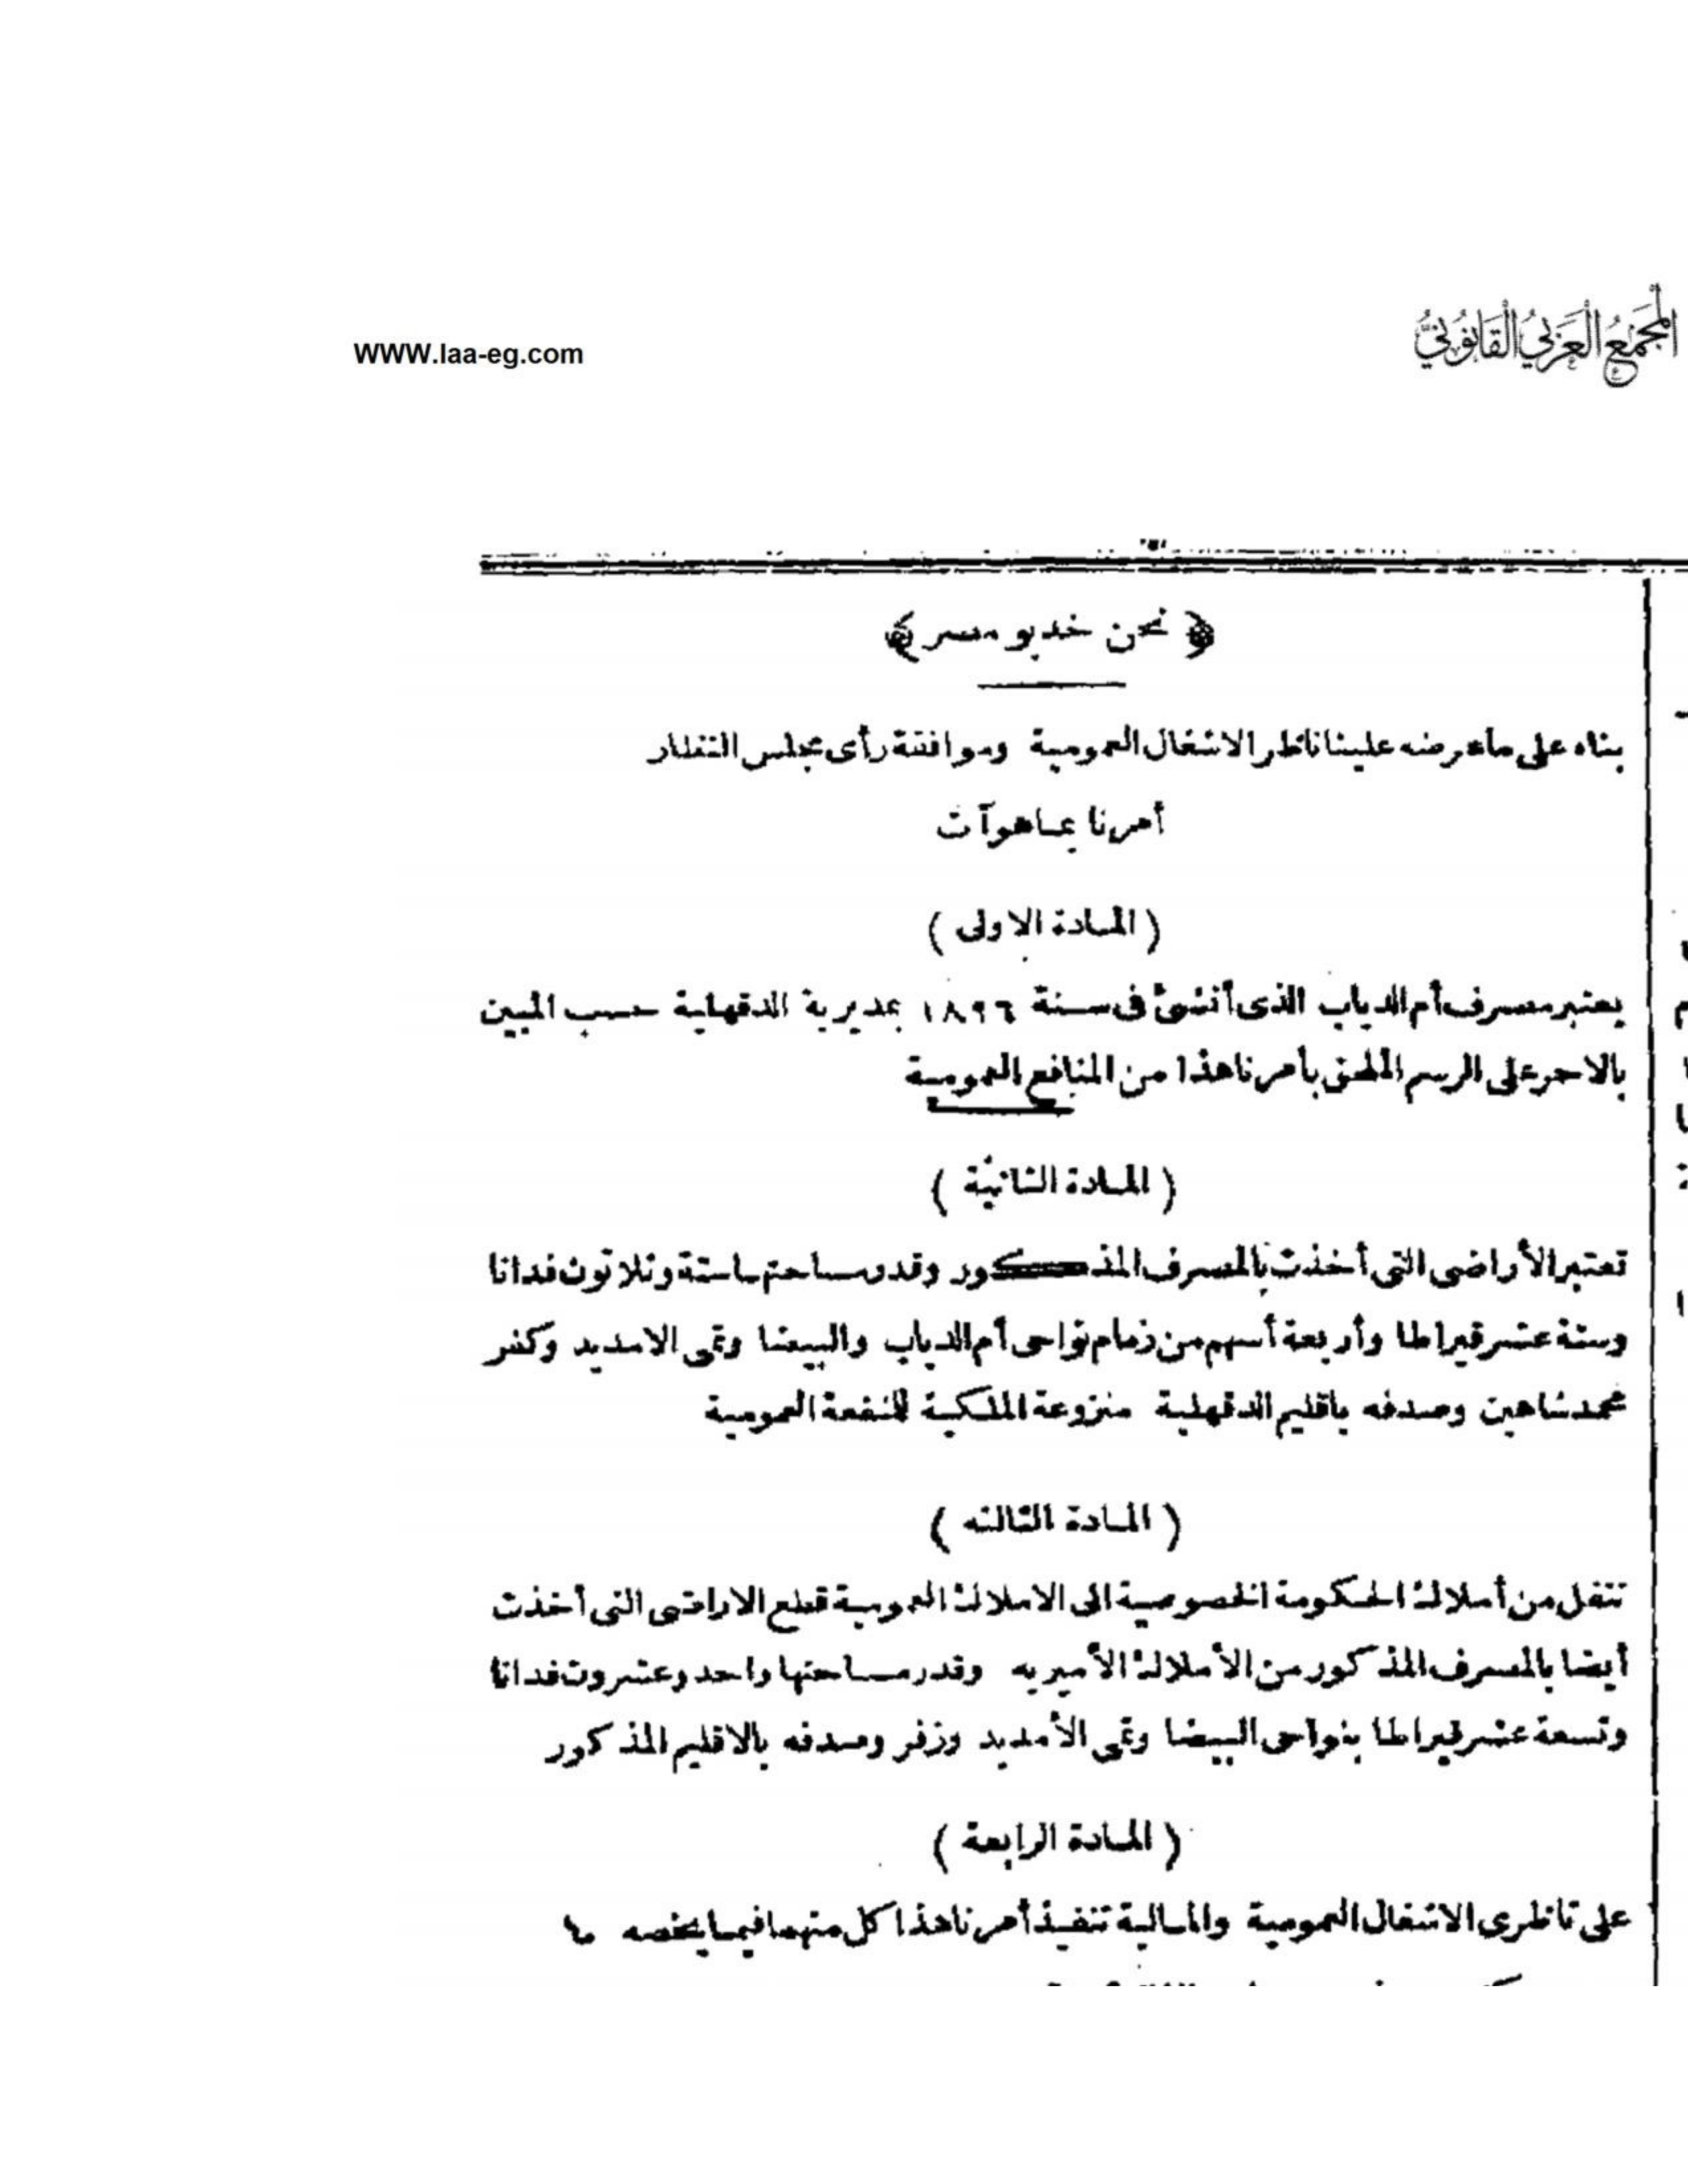 WWW.laa-eg.com
المجمع العربي القانوني
﴿ نحن خديو مصر ﴾
بناء على ماعرضه علينا ناظر الاشغال العمومية وموافقة رأى مجلس النظار
أمرنا بما هو آت
( المادة الاولى )
يعتبر مصرف أم الدياب الذى أنشئ فى سنة ١٨٩٦ بمديرية الدقهلية حسب المبين
بالاحمر على الرسم الملحق بأمرنا هذا من المنافع العمومية
( المادة الثانية )
تعتبر الأراضى التى أخذت بالمصرف المذكور وقدر مساحتها ستة وثلاثون فدانا
وستة عشر قيراطا وأربعة أسهم من زمام نواحى أم الدياب والبيضا وتمى الامديد وكفر
محمد شاهين وصدفه باقليم الدقهلية منزوعة الملكية للمنفعة العمومية
( المادة الثالثه )
تنقل من أملاك الحكومة الخصوصية الى الاملاك العمومية قطع الاراضى التى أخذت
أيضا بالمصرف المذكور من الأملاك الأميريه وقدر مساحتها واحد وعشرون فدانا
وتسعة عشر قيراطا بنواحى البيضا وتمى الأمديد وزفر وصدفه بالاقليم المذكور
( المادة الرابعة )
على ناظرى الاشغال العمومية والمالية تنفيذ أمرنا هذا كل منهما فيما يخصه